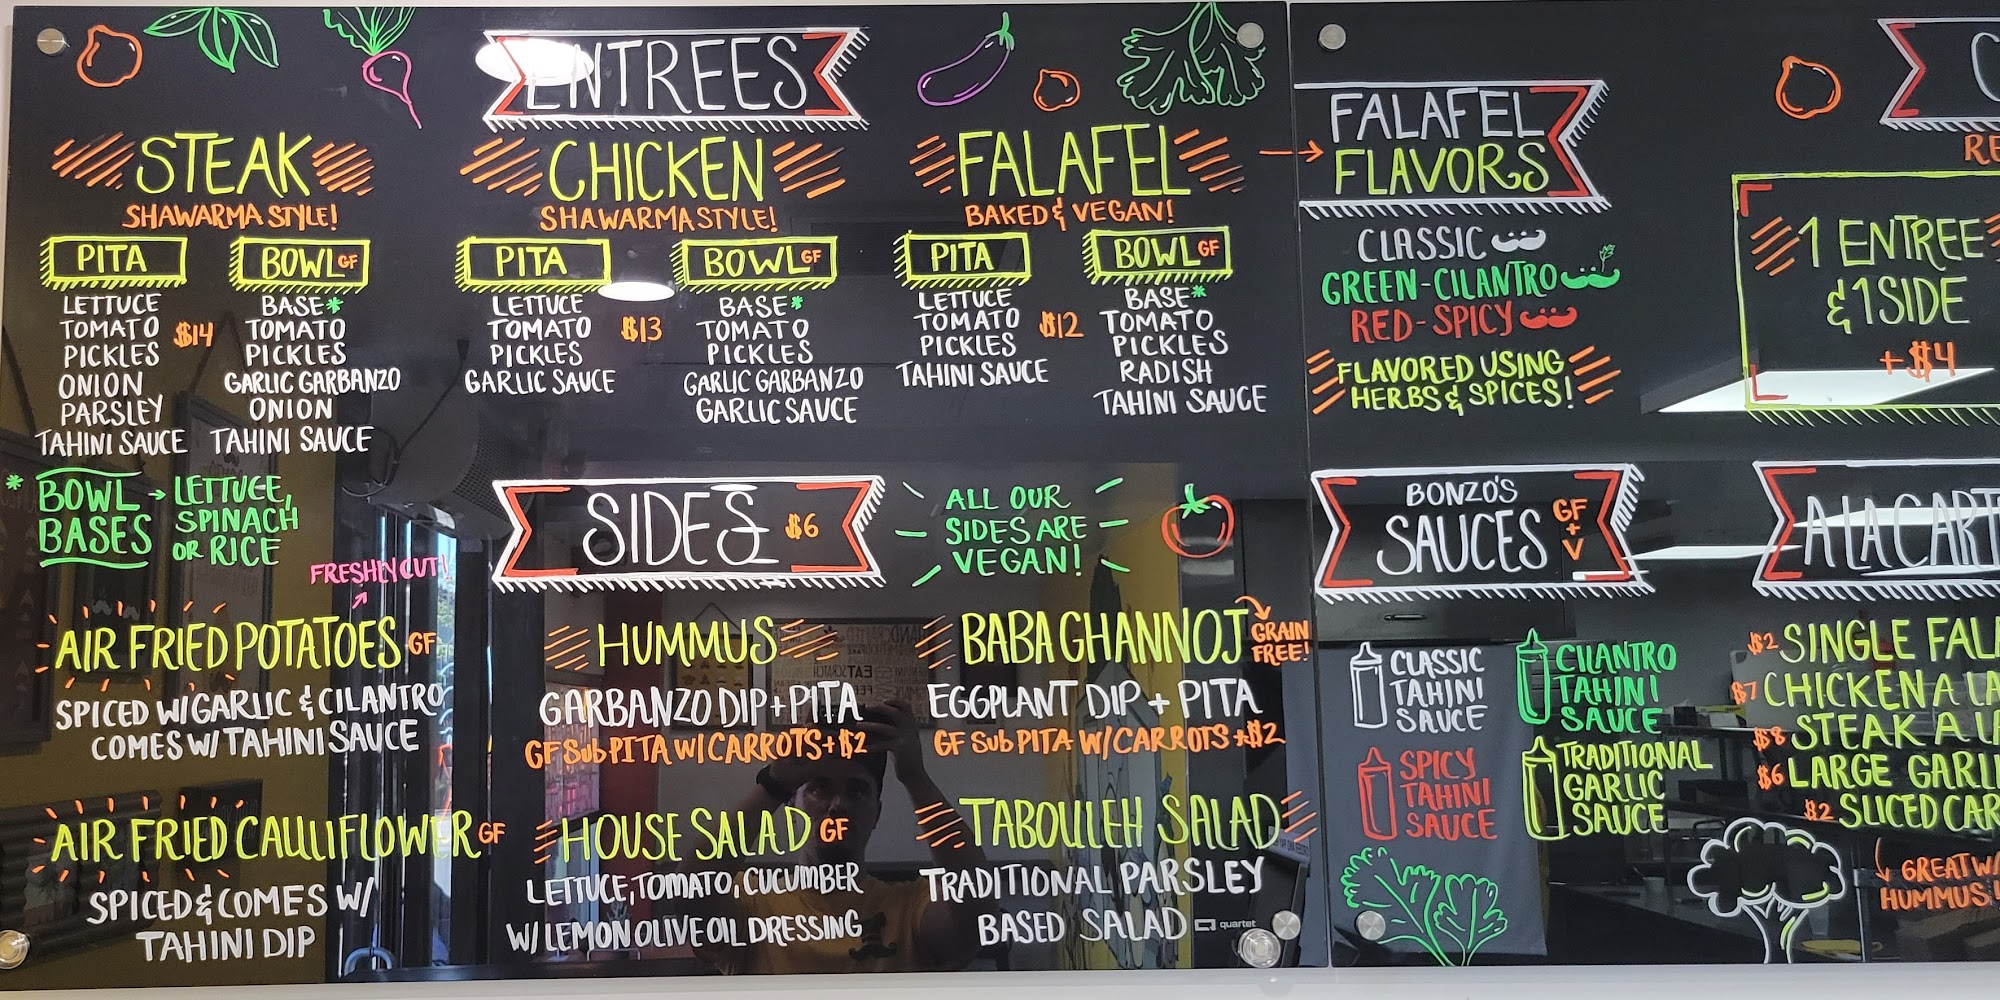 ENTREES
STEAK
SHAWARMA STYLE!
PITA
LETTUCE
TOMATO
PICKLES
ONION
PARSLEY
TAHINI SAUCE
$14
BOWL GF
BASE*
TOMATO
PICKLES
GARLIC GARBANZO
ONION
TAHINI SAUCE
* BOWL BASES → LETTUCE,
SPINACH
OR RICE
CHICKEN
SHAWARMA STYLE!
PITA
LETTUCE
TOMATO
PICKLES
GARLIC SAUCE
$13
BOWL GF
BASE*
TOMATO
PICKLES
GARLIC GARBANZO
GARLIC SAUCE
FALAFEL
BAKED & VEGAN!
PITA
LETTUCE
TOMATO
PICKLES
TAHINI SAUCE
$12
BOWL GF
BASE*
TOMATO
PICKLES
RADISH
TAHINI SAUCE
FALAFEL
FLAVORS
CLASSIC
GREEN-CILANTRO
RED-SPICY
FLAVORED USING
HERBS & SPICES!
1 ENTREE
& 1 SIDE
+ $4
SIDES $6
ALL OUR
SIDES ARE
VEGAN!
FRESHLY CUT!
AIR FRIED POTATOES GF
SPICED W/GARLIC & CILANTRO
COMES W/ TAHINI SAUCE
HUMMUS
GARBANZO DIP + PITA
GF SUB PITA W/ CARROTS + $2
BABA GHANNOJ
GRAIN
FREE!
EGGPLANT DIP + PITA
GF SUB PITA W/ CARROTS + $2
AIR FRIED CAULIFLOWER GF
SPICED & COMES W/
TAHINI DIP
HOUSE SALAD GF
LETTUCE, TOMATO, CUCUMBER
W/ LEMON OLIVE OIL DRESSING
TABOULEH SALAD
TRADITIONAL PARSLEY
BASED SALAD
quartet
BONZO'S
SAUCES
GF
+
V
CLASSIC
TAHINI
SAUCE
CILANTRO
TAHINI
SAUCE
SPICY
TAHINI
SAUCE
TRADITIONAL
GARLIC
SAUCE
A LA CART
$2 SINGLE FALA
$7 CHICKEN A LA
$8 STEAK A LA
$6 LARGE GARLI
$2 SLICED CAR
GREAT W/
HUMMUS!